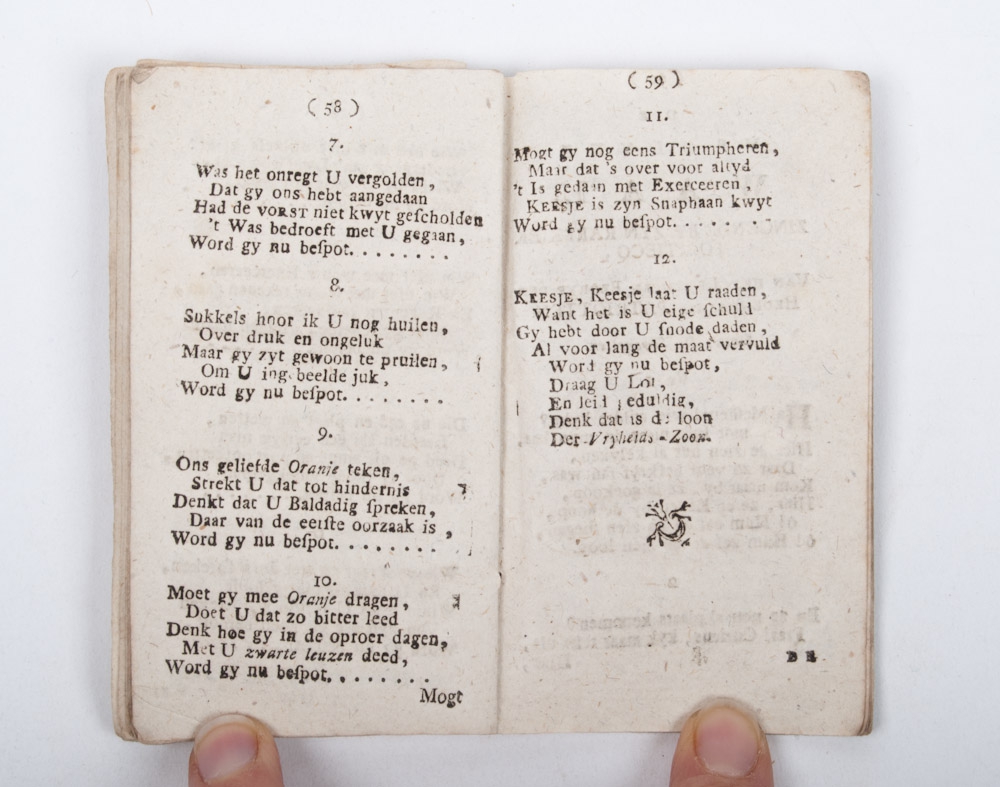 ( 58 )
7.
Was het onregt U vergolden,
Dat gy ons hebt aangedaan
Had de VORST niet kwyt geſcholden
't Was bedroeft met U gegaan,
Word gy nu beſpot. . . . . . . .
8.
Sukkels hoor ik U nog huilen,
Over druk en ongeluk
Maar gy zyt gewoon te pruilen,
Om U ingebeelde juk,
Word gy nu beſpot. . . . . . . .
9.
Ons geliefde Oranje teken,
Strekt U dat tot hindernis
Denkt dat U Baldadig ſpreken,
Daar van de eerſte oorzaak is,
Word gy nu beſpot. . . . . . . .
10.
Moet gy mee Oranje dragen,
Doet U dat zo bitter leed
Denk hoe gy in de oproer dagen,
Met U zwarte leuzen deed,
Word gy nu beſpot. . . . . . . .
Mogt
( 59 )
11.
Mogt gy nog eens Triumpheren,
Maar dat 's over voor altyd
't Is gedaan met Exerceeren,
KEESJE is zyn Snaphaan kwyt
Word gy nu beſpot. . . . . . .
12.
KEESJE, Keesje laat U raaden,
Want het is U eige ſchuld
Gy hebt door U ſnode daden,
Al voor lang de maat vervuld
Word gy nu beſpot,
Draag U Lot,
En leid geduldig,
Denk dat is de loon
Der Vryheids-Zoon.